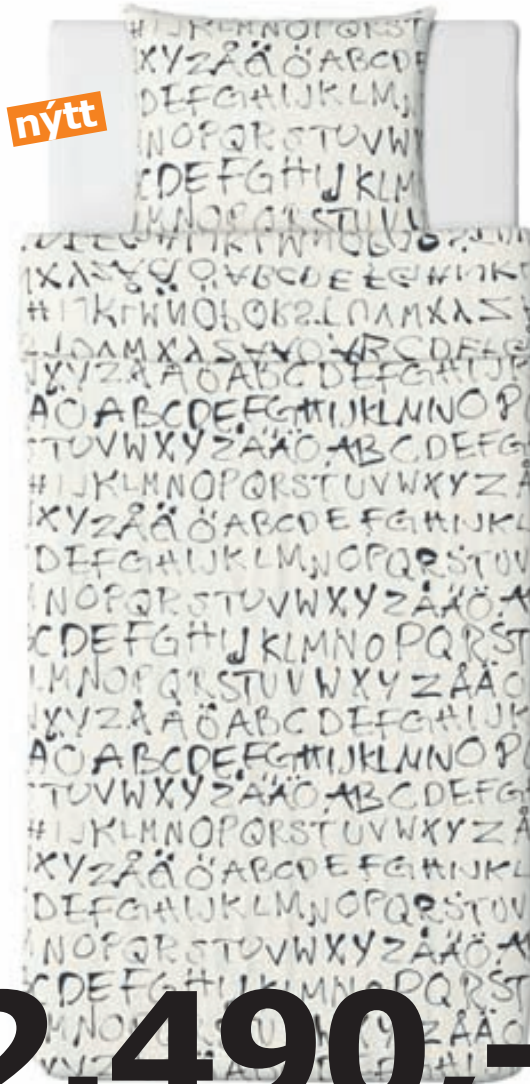 nýtt
H I J K L M N O P Q R S T
X Y Z Å Ä Ö A B C D E
D E F G H I J K L M N
N O P Q R S T U V W
C D E F G H I J K L M
M N O P Q R S T U V
X Y Z Å Ä Ö A B C D E F G H I J K
Ä Ö A B C D E F G H I J K L M N O P
S T U V W X Y Z Å Ä Ö A B C D E F G
H I J K L M N O P Q R S T U V W X Y Z Å
X Y Z Å Ä Ö A B C D E F G H I J K L
D E F G H I J K L M N O P Q R S T U V
N O P Q R S T U V W X Y Z Å Ä Ö A
C D E F G H I J K L M N O P Q R S T
L M N O P Q R S T U V W X Y Z Å Ä Ö
X Y Z Å Ä Ö A B C D E F G H I J K
Ä Ö A B C D E F G H I J K L M N O P
T U V W X Y Z Å Ä Ö A B C D E F G
H I J K L M N O P Q R S T U V W X Y Z Å
X Y Z Å Ä Ö A B C D E F G H I J K L
D E F G H I J K L M N O P Q R S T U V
N O P Q R S T U V W X Y Z Å Ä Ö A
C D E F G H I J K L M N O P Q R S T
2.490.-